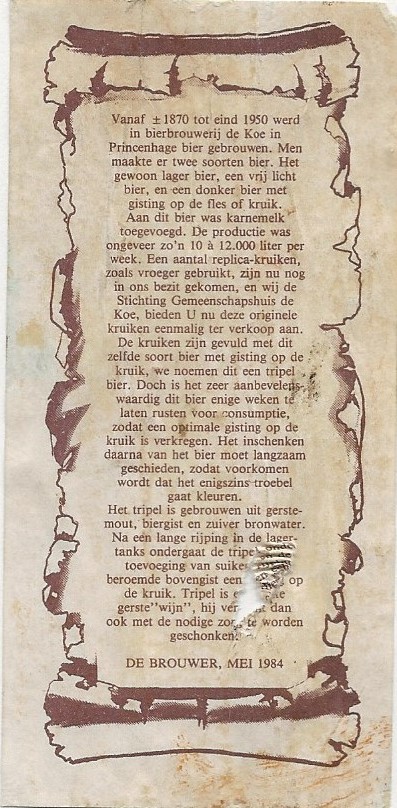 Vanaf ± 1870 tot eind 1950 werd
in bierbrouwerij de Koe in
Princenhage bier gebrouwen. Men
maakte er twee soorten bier. Het
gewoon lager bier, een vrij licht
bier, en een donker bier met
gisting op de fles of kruik.
Aan dit bier was karnemelk
toegevoegd. De productie was
ongeveer zo'n 10 à 12.000 liter per
week. Een aantal replica-kruiken,
zoals vroeger gebruikt, zijn nu nog
in ons bezit gekomen, en wij de
Stichting Gemeenschapshuis de
Koe, bieden U nu deze originele
kruiken eenmalig ter verkoop aan.
De kruiken zijn gevuld met dit
zelfde soort bier met gisting op de
kruik, we noemen dit een tripel
bier. Doch is het zeer aanbevelens-
waardig dit bier enige weken te
laten rusten voor consumptie,
zodat een optimale gisting op de
kruik is verkregen. Het inschenken
daarna van het bier moet langzaam
geschieden, zodat voorkomen
wordt dat het enigszins troebel
gaat kleuren.
Het tripel is gebrouwen uit gerste-
mout, biergist en zuiver bronwater.
Na een lange rijping in de lager-
tanks ondergaat de tripel
toevoeging van suike
beroemde bovengist een op
de kruik. Tripel is
gerste''wijn'', hij dan
ook met de nodige zorg te worden
geschonken.
DE BROUWER, MEI 1984